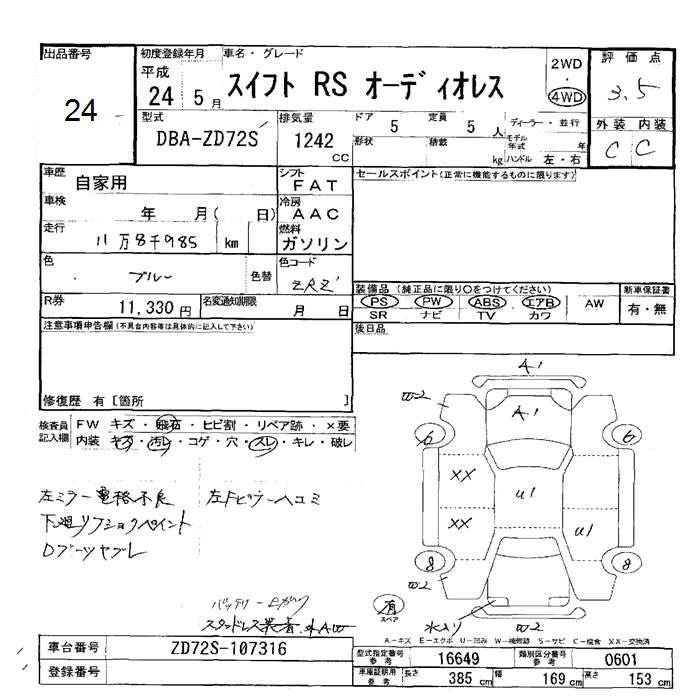 出品番号
24
初度登録年月
平成
24 5月
車名・グレード
スイフト RS オーディオレス
2WD
・
4WD
評価点
3.5
外装 内装
C C
型式
DBA-ZD72S
排気量
1242
CC
ドア
5
定員
5
人
形状
積載
kg
ディーラー・並行
モデル
年式
年
ハンドル 左・右
車歴
自家用
シフト
FAT
セールスポイント(正常に機能するものに限ります)
車検
年 月( 日)
冷房
AAC
走行
11万8千985 km
燃料
ガソリン
色
ブルー
色替
色コード
ZRZ
装備品 (純正品に限り〇をつけてください)
PS PW ABS エアB AW
SR ナビ TV カワ
新車保証書
有・無
R券
11,330 円
名変通知期限
月 日
注意事項申告欄(不具合内容等は具体的に記入して下さい)
後日品
修復歴 有 [箇所 ]
検査員
記入欄
FW キズ・飛石・ヒビ割・リペア跡・×要
内装 キズ・汚レ・コゲ・穴・スレ・キレ・破レ
左ミラー電格不良
左Fピラーヘコミ
下廻リフショクペイント
Dブーツヤブレ
A1
W2
A1
6
6
XX
U1
XX
U1
8
8
W2
有
スペア
水入リ
W2
A-キズ E-エクボ U-凹み W-補修跡 S-サビ C-腐食 XX-交換済
車台番号
ZD72S-107316
登録番号
型式指定番号
参考
16649
類別区分番号
参考
0601
車庫証明用
参考
長さ
385 cm
幅
169 cm
高さ
153 cm